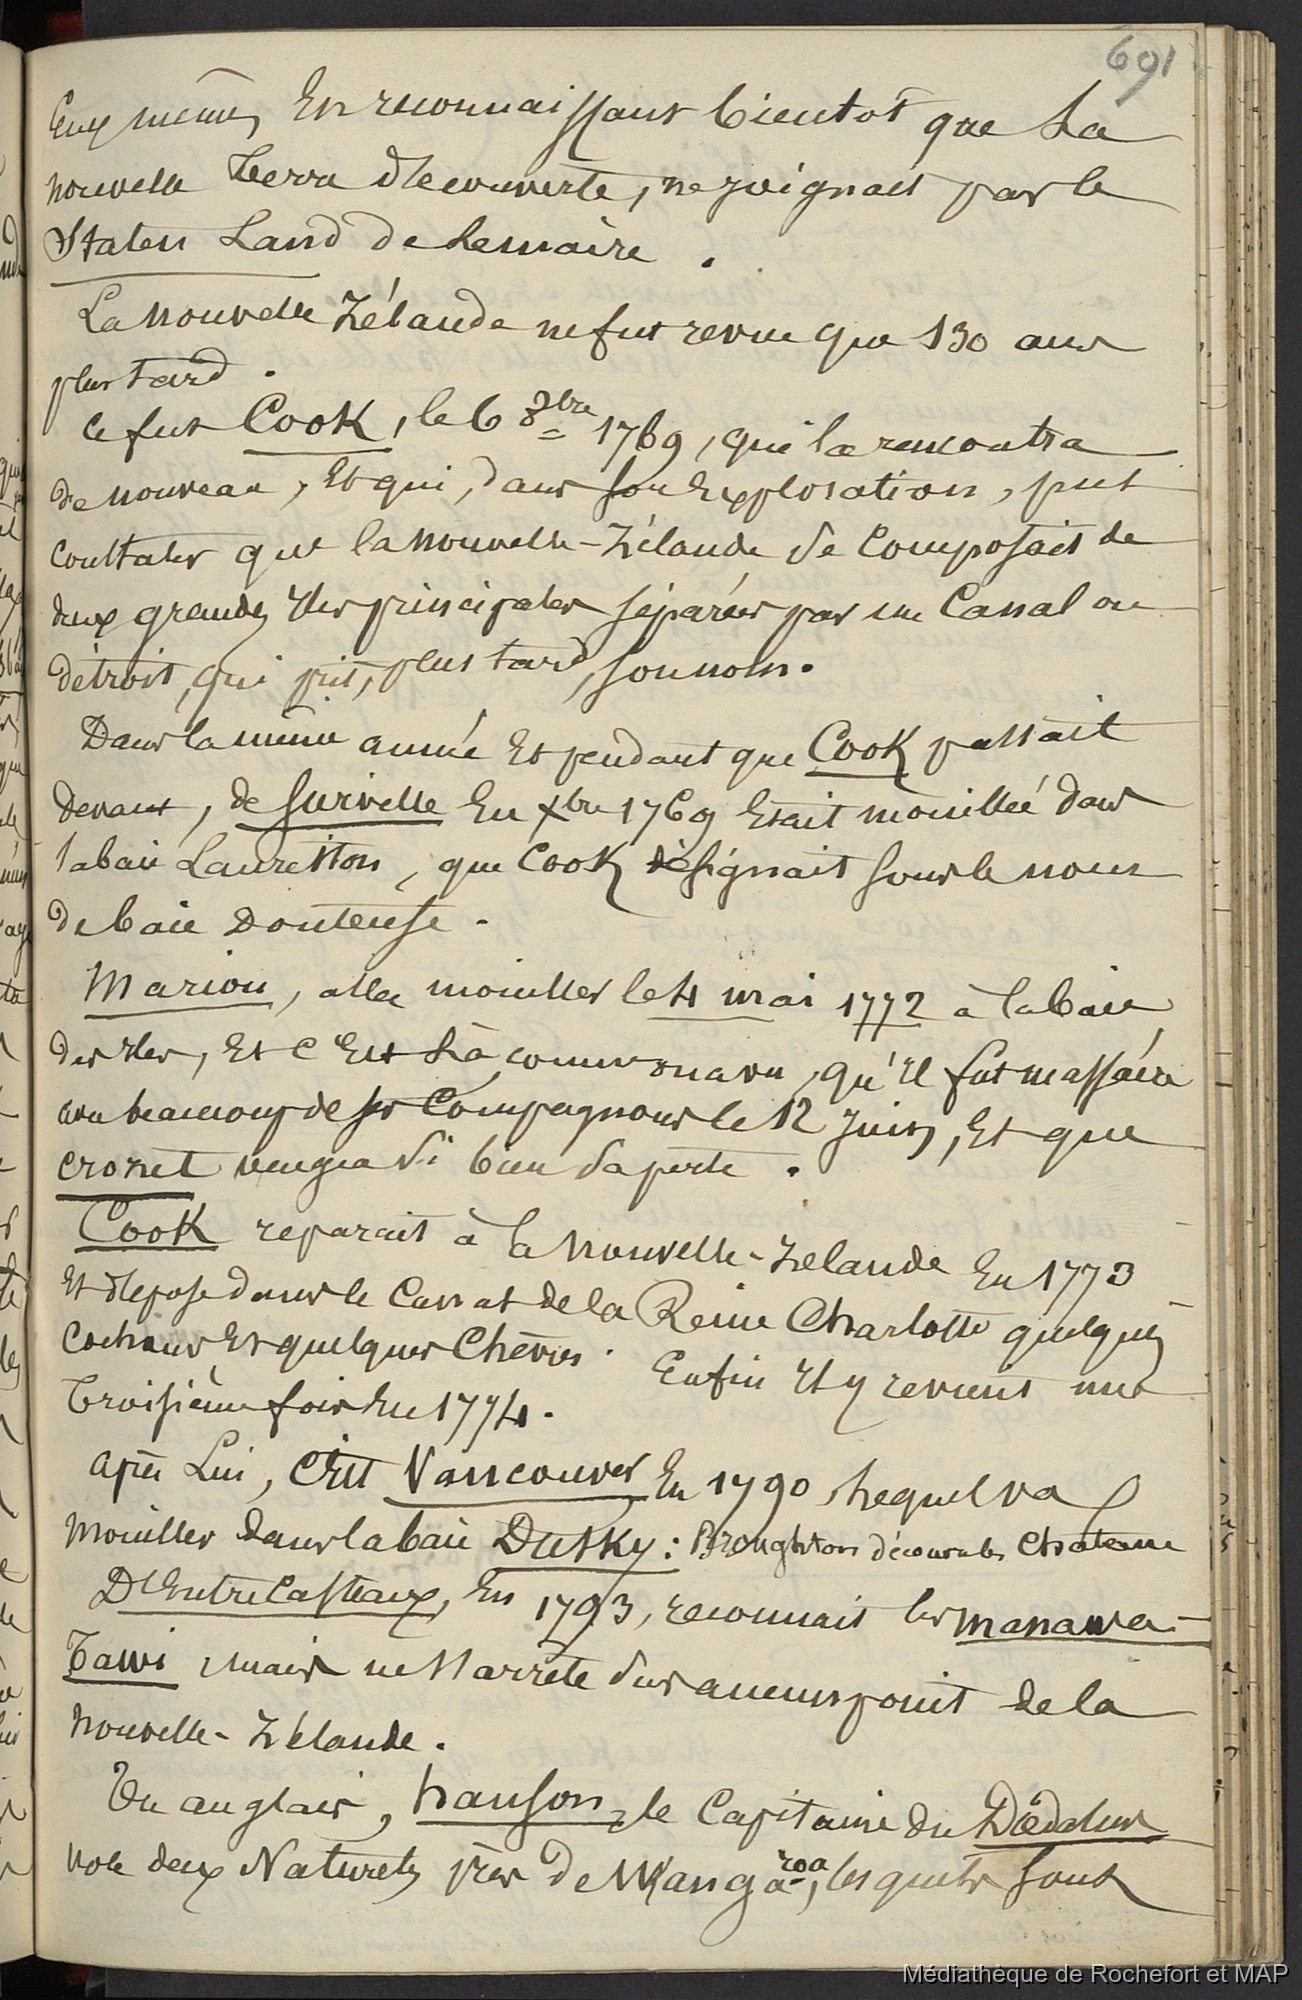 691
Eux mêmes, En reconnaissant bientôt que La
nouvelle Terre découverte, ne joignait pas le
Staten Land de Lemaire.
La Nouvelle Zélande ne fut revue que 130 ans
plus tard.
Ce fut Cook, le 6 8bre 1769, qui la rencontra
de nouveau, Et qui, dans son Exploration, put
constater que la Nouvelle-Zélande se Composait de
deux grandes Iles principales séparées par un Canal ou
détroit, qui prit, plus tard, son nom.
Dans la même année Et pendant que Cook passait
devant, de Surville En Xbre 1769 Etait mouillé dans
la baie Lauriston, que Cook désignait sous le nom
de baie Douteuse.
Marion, alla mouiller le 4 mai 1772 à la baie
des Iles, Et C'Est Là, comme on a vu, qu'il fut massacré
avec beaucoup de ses Compagnons le 12 Juin, Et que
Crozet vengea si bien sa perte.
Cook reparait à la Nouvelle-Zélande En 1773
Et dépose dans le Canal de la Reine Charlotte quelques
Cochons Et quelques Chèvres. Enfin Il y revient une
Troisième fois En 1774.
après Lui, C'Est Vancouver En 1790, Lequel va
Mouiller dans la baie Dusky: Broughton découvre les Chatam
D'Entrecasteaux, En 1793, reconnait les Manawa-
Tawi, mais ne s'arrète sur aucun point de la
Nouvelle-Zélande.
Un anglais, hanson, le Capitaine du Dœdalus
vole deux Naturels près de Wangaroa, lesquels sont
Médiathèque de Rochefort et MAP